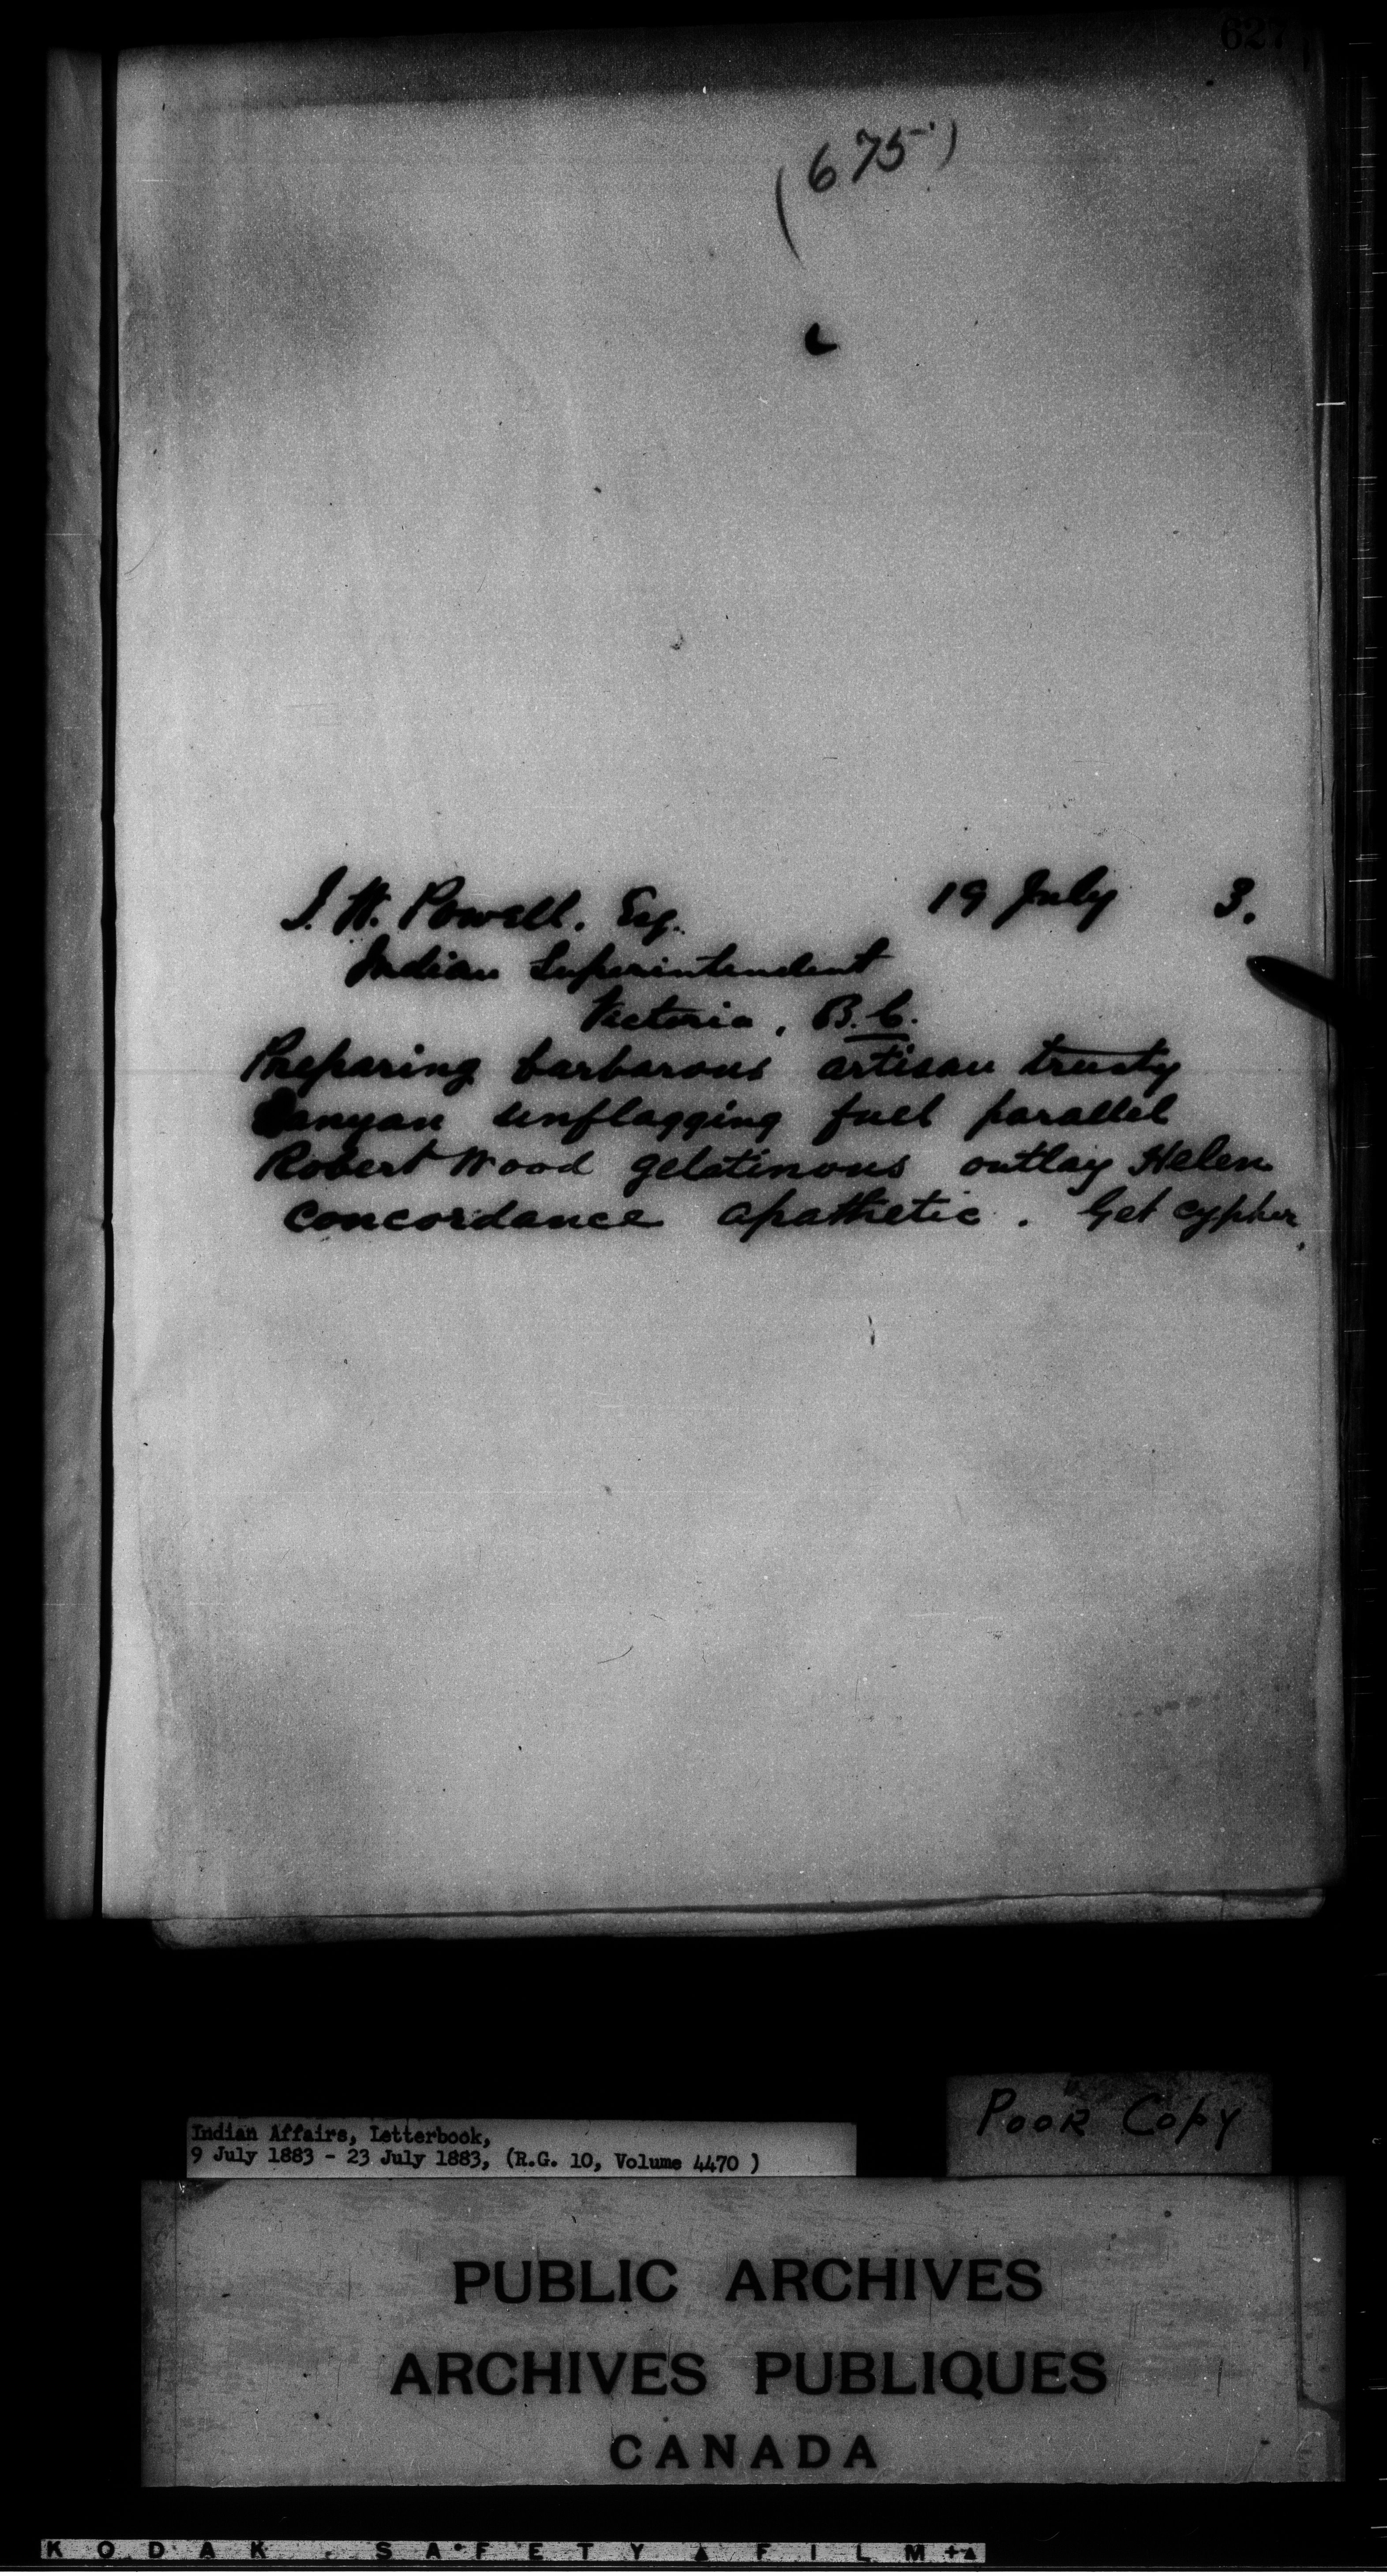 627
(675)
I. W. Powell. Esq. 19 July 3.
Indian Superintendent
Victoria, B.C.
Preparing barbarous artisan trusty
Banyan unflagging fuel parallel
Robert Wood gelatinous outlay Helen
concordance apathetic. Get cypher.
Poor Copy
Indian Affairs, Letterbook,
9 July 1883 - 23 July 1883, (R.G. 10, Volume 4470 )
PUBLIC ARCHIVES
ARCHIVES PUBLIQUES
CANADA
KODAK SAFETY FILM